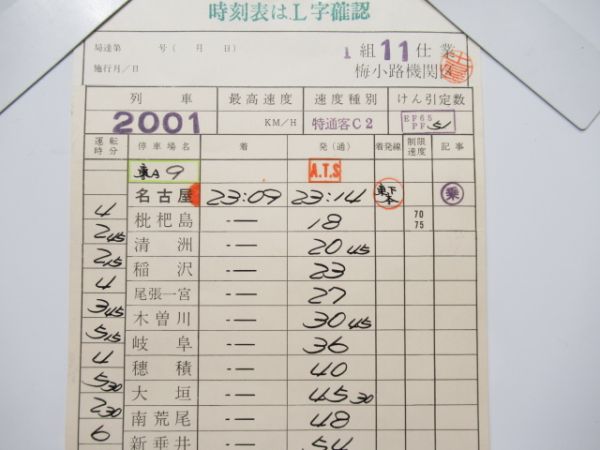 時刻表はL字確認
局達第 号( 月 日) 1 組 11 仕業
施行月/日 梅小路機関区
列車 最高速度 速度種別 けん引定数
2001 KM/H 特通客C2 EF65 PF 51
運転時分 停車場名 着 発(通) 着発線 制限速度 記事
9 A.T.S
名古屋 23:09 23:14 東下本 乗
4 枇杷島 -- 18 70 75
2 45 清洲 -- 20 45
2 15 稲沢 -- 23
4 尾張一宮 -- 27
3 45 木曽川 -- 30 45
5 15 岐阜 -- 36
4 穂積 -- 40
5 30 大垣 -- 45 30
2 30 南荒尾 -- 48
6 新垂井 -- 54